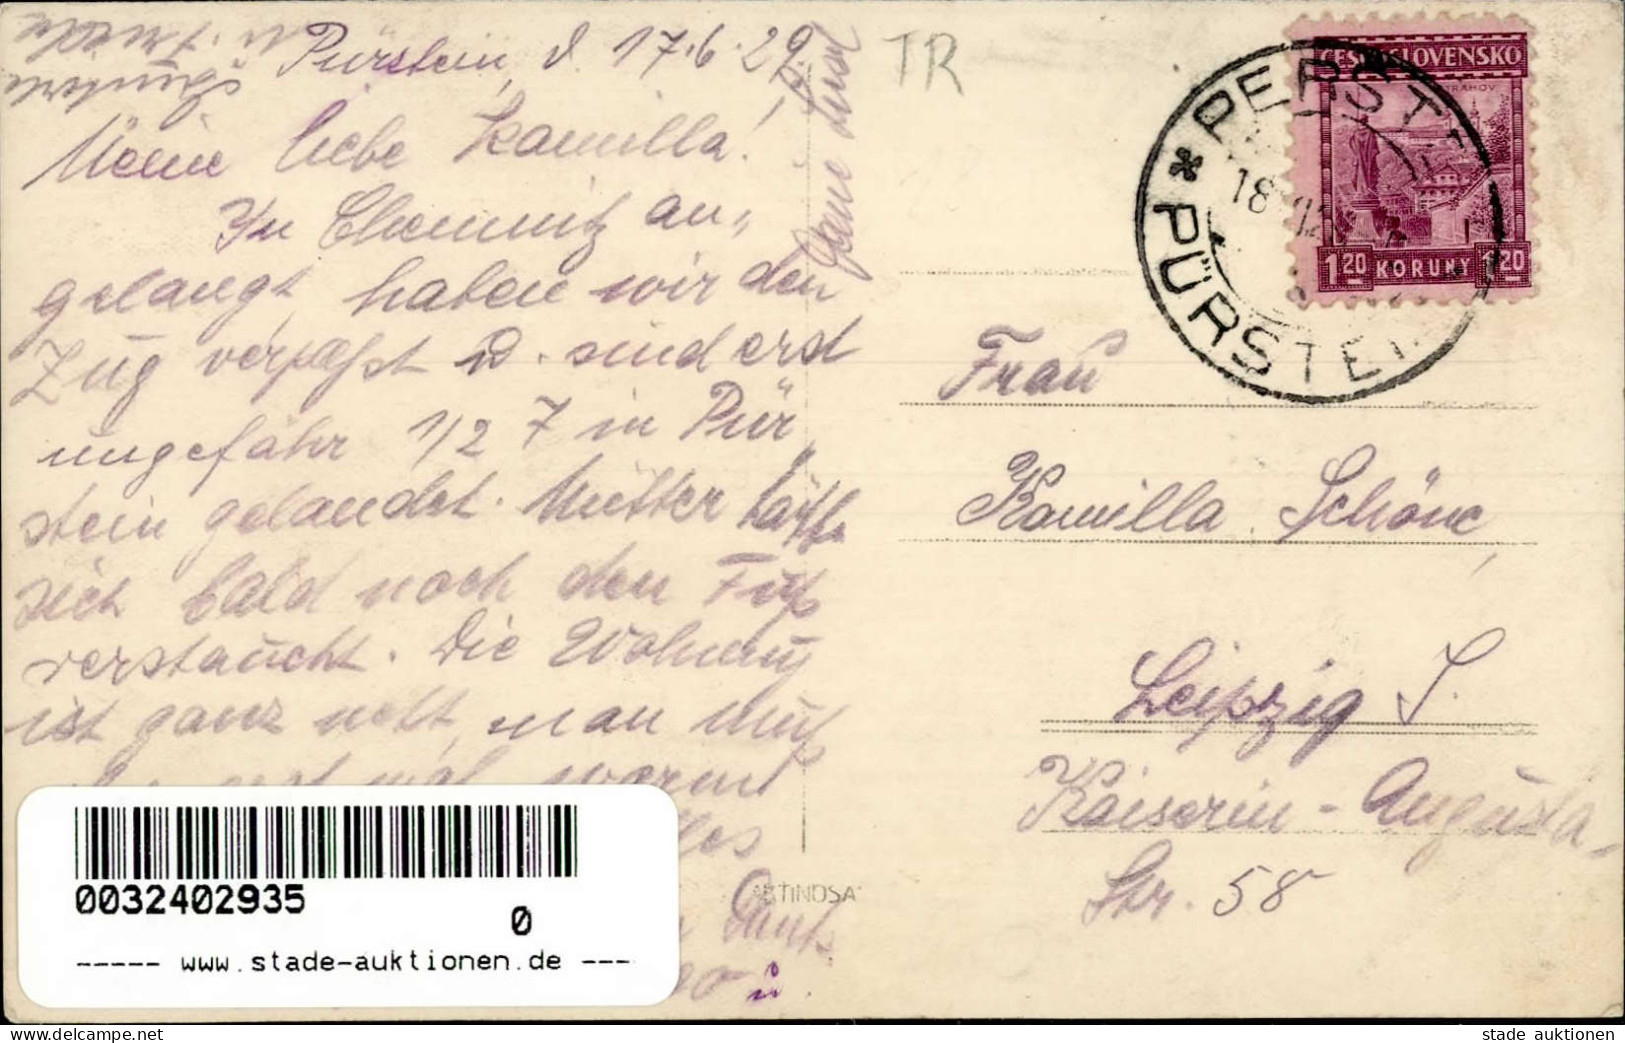 Pürstein, d. 17.6.29.
Meine liebe Kamilla!
In Chemnitz an„
gelangt, haben wir den
Zug verpaßt u. sind erst
ungefähr 1/2 7 in Pür„
stein gelandet. Mutter hätte
sich bald noch den Fuß
verstaucht. Die Wohnung
ist ganz nett, man muß
erst mal warm
TR
ČESKOSLOVENSKO
STRAHOV
1.20 KORUNY 1.20
PERŠT
PÜRSTEI
18
Frau
Kamilla Schöne,
Leipzig S.
Kaiserin-Augusta-
Str. 58
ARTINOSA
0032402935
0
----- www.stade-auktionen.de ---
www.delcampe.net
stade auktionen